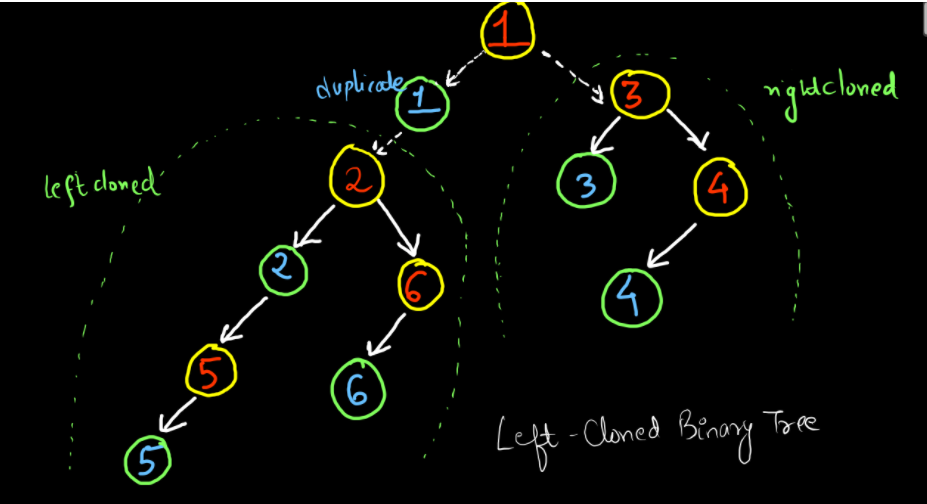 1
duplicate 1
3
rightcloned
left cloned
2
3
4
2
6
4
5
6
5
Left-Cloned Binary Tree